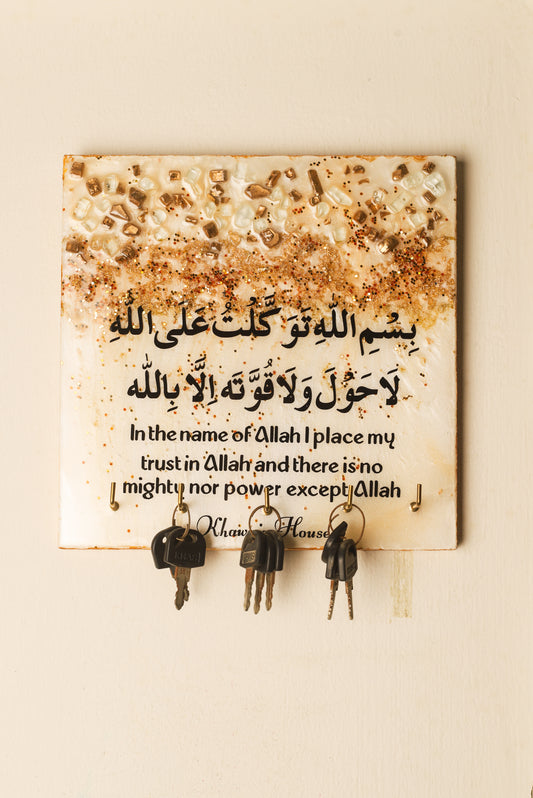 بِسْمِ اللّٰهِ تَوَكَّلْتُ عَلَى اللّٰهِ
لَا حَوْلَ وَلَا قُوَّتَه اِلَّا بِاللّٰه
In the name of Allah I place my
trust in Allah and there is no
mighty nor power except Allah
House